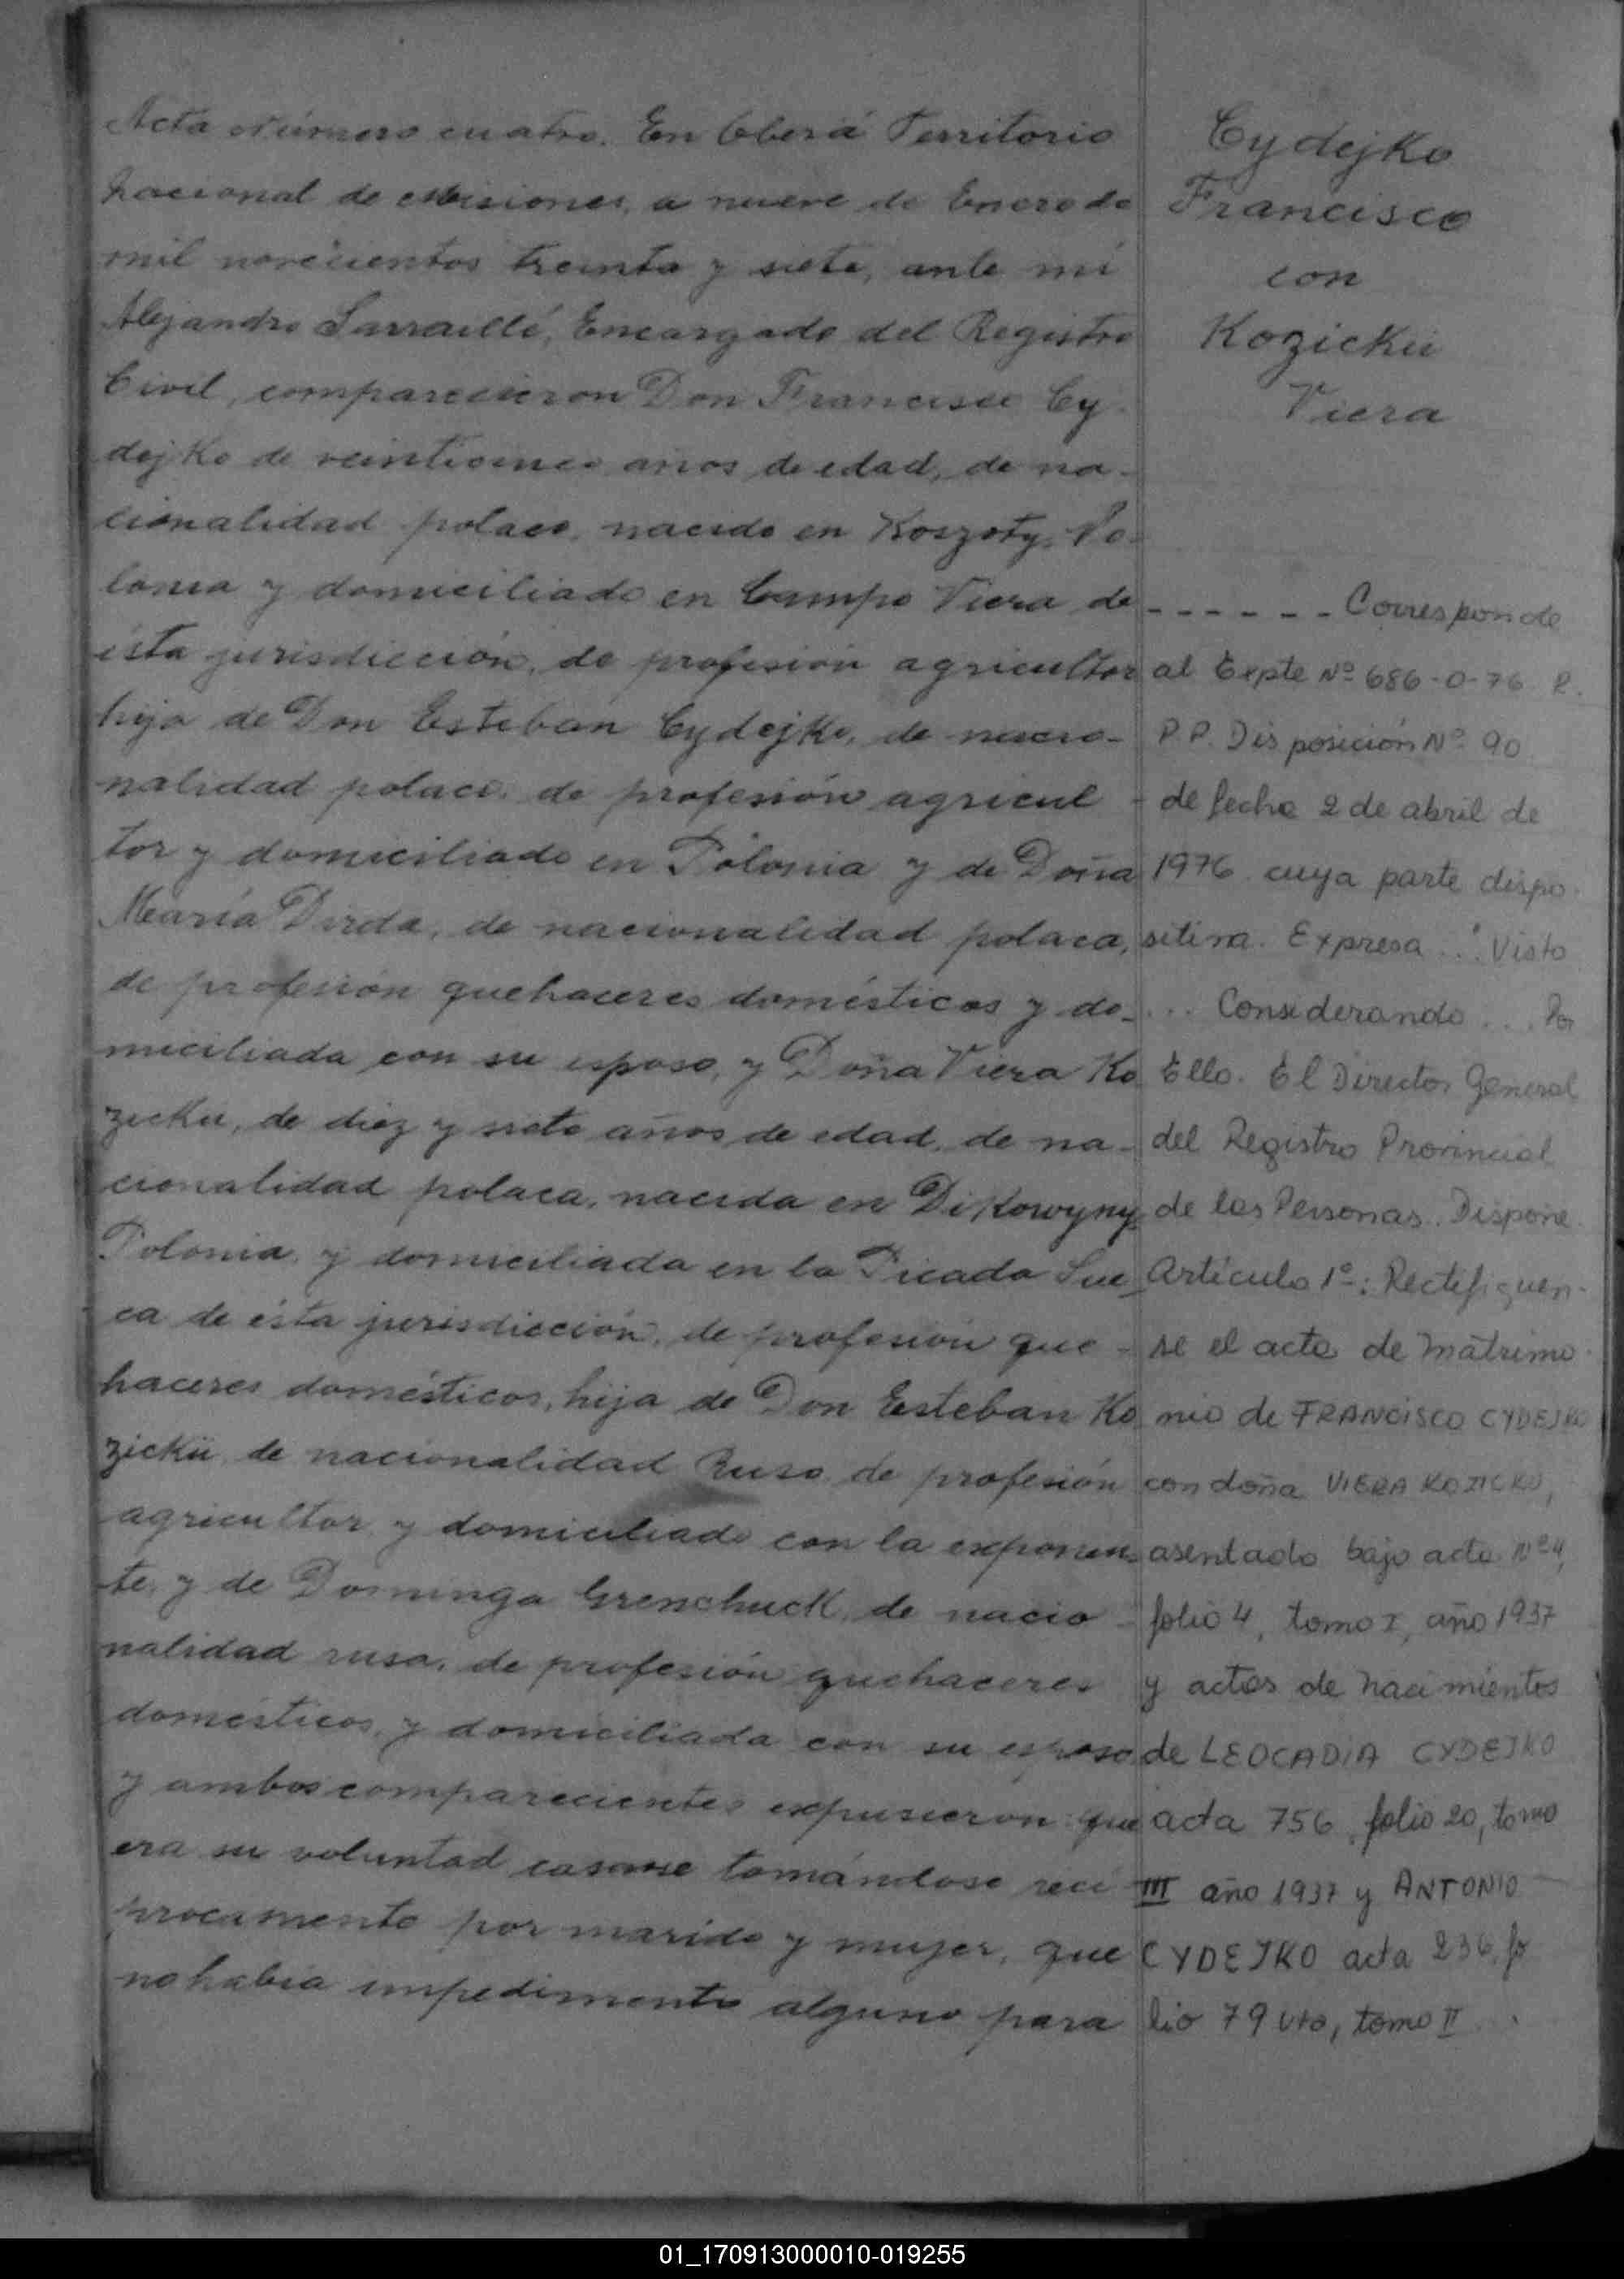 Acta Número cuatro. En Oberá Territorio
Nacional de Misiones, a nueve de Enero de
mil novecientos treinta y siete, ante mí
Alejandro Sarraillé, Encargado del Registro
Civil, comparecieron Don Francisco Cy-
dejko de veinticinco años de edad, de na-
cionalidad polaco, nacido en Koszoty, Po-
lonia y domiciliado en Campo Viera de
ésta jurisdicción, de profesión agricultor
hijo de Don Esteban Cydejko, de nacio-
nalidad polaco, de profesión agricul-
tor y domiciliado en Polonia y de Doña
María Dirda, de nacionalidad polaca,
de profesión quehaceres domésticos y do-
miciliada con su esposo, y Doña Viera Ko
zickii, de diez y siete años de edad, de na-
cionalidad polaca, nacida en Dikowyny,
Polonia, y domiciliada en la Picada Sue-
ca de ésta jurisdicción, de profesión que-
haceres domésticos, hija de Don Esteban Ko
zickii de nacionalidad Ruso de profesión
agricultor y domiciliado con la exponen-
te, y de Dominga Grenchuck, de nacio-
nalidad rusa, de profesión quehaceres
domésticos, y domiciliada con su esposo,
y ambos comparecientes expusieron: que
era su voluntad casarse tomándose reci-
procamente por marido y mujer, que
no había impedimento alguno para
Cydejko
Francisco
con
Kozickii
Viera
- - - - - - Corresponde
al Expte Nº 686-0-76 R.
P.P. Disposición Nº 90
de fecha 2 de abril de
1976 cuya parte dispo-
sitiva. Expresa ..." Visto
... Considerando ... Por
Ello. El Director General
del Registro Provincial
de las Personas. Dispone.
Artículo 1º: Rectifiquen-
se el acta de Matrimo-
nio de FRANCISCO CYDEJKO
con doña VIERA KOZICKII,
asentado bajo acta Nº 4,
folio 4, tomo I, año 1937
y actas de nacimientos
de LEOCADIA CYDEJKO
acta 756, folio 20, tomo
III año 1937 y ANTONIO
CYDEJKO acta 236, fo
lio 79 vto, tomo II
01_170913000010-019255